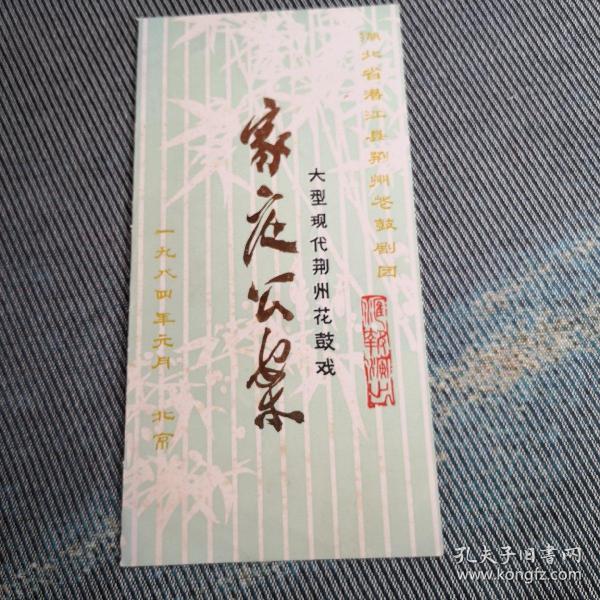 湖北省潜江县荆州花鼓剧团
汇报演出
大型现代荆州花鼓戏
家庭公案
一九八四年元月 北京
孔夫子旧书网
www.kongfz.com